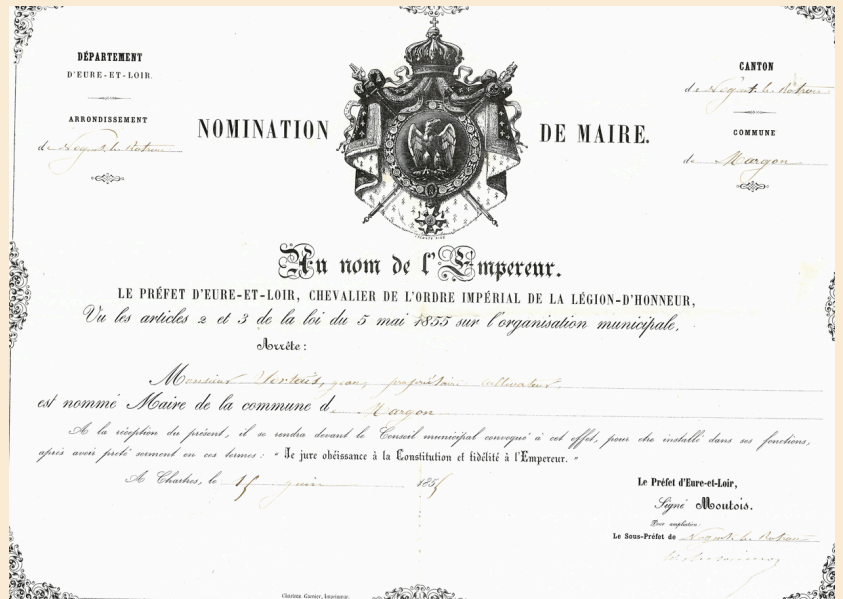 DÉPARTEMENT
D'EURE-ET-LOIR.
ARRONDISSEMENT
de Nogent-le-Rotrou
NOMINATION DE MAIRE.
CANTON
de Nogent-le-Rotrou
COMMUNE
de Margon
Au nom de l'Empereur.
LE PRÉFET D'EURE-ET-LOIR, CHEVALIER DE L'ORDRE IMPÉRIAL DE LA LÉGION-D'HONNEUR,
Vu les articles 2 et 3 de la loi du 5 mai 1855 sur l'organisation municipale,
Arrête:
Monsieur propriétaire cultivateur,
est nommé Maire de la commune de Margon
A la réception du présent, il se rendra devant le Conseil municipal convoqué à cet effet, pour être installé dans ses fonctions,
après avoir prêté serment en ces termes: "Je jure obéissance à la Constitution et fidélité à l'Empereur."
A Chartres, le 15 juin 1855
Le Préfet d'Eure-et-Loir,
Signé Moutois.
Pour ampliation:
Le Sous-Préfet de Nogent-le-Rotrou
Chartres, Garnier, Imprimeur.